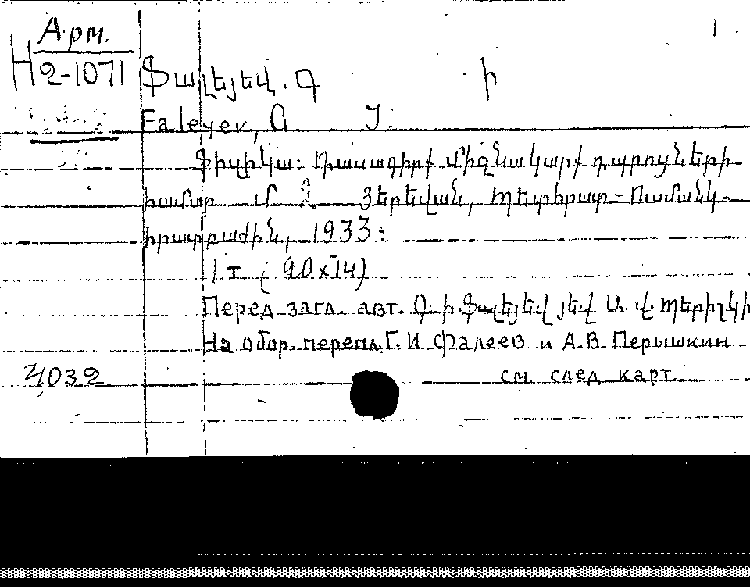 Арм. 1
Н 2-1071 Ֆալեյեվ. Գ Ի
Faleyev, G I.
Ֆիզիկա: Դասագիրք միջնակարգ դպրոցների
համար մ 2 Յերեվան, Պետհրատ-Ուսմանկ
հրատբաժին, 1933:
1 т ( 20х14)
Перед загл. авт. Գ. Ի. Ֆալեյեվ յեվ Ա. Վ. Պերիշկի
На обор. перепл. Г. И. Фалеев и А. В. Перышкин
4032 см. след карт.